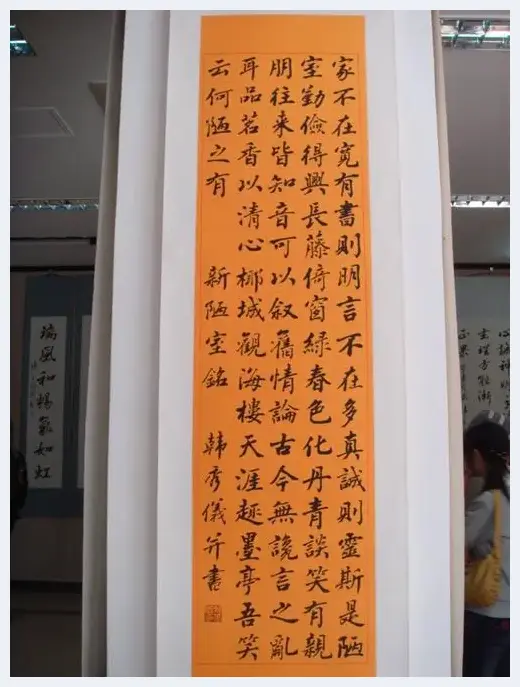 家不在寬有書則明言不在多真誠則靈斯是陋
室勤儉得興長藤倚窗綠春色化丹青談笑有親
朋往來皆知音可以叙舊情論古今無讒言之亂
耳品茗香以清心椰城觀海樓天涯趣墨亭吾笑
云何陋之有 新陋室銘 韓秀儀并書
瑞風和暢氣如虹